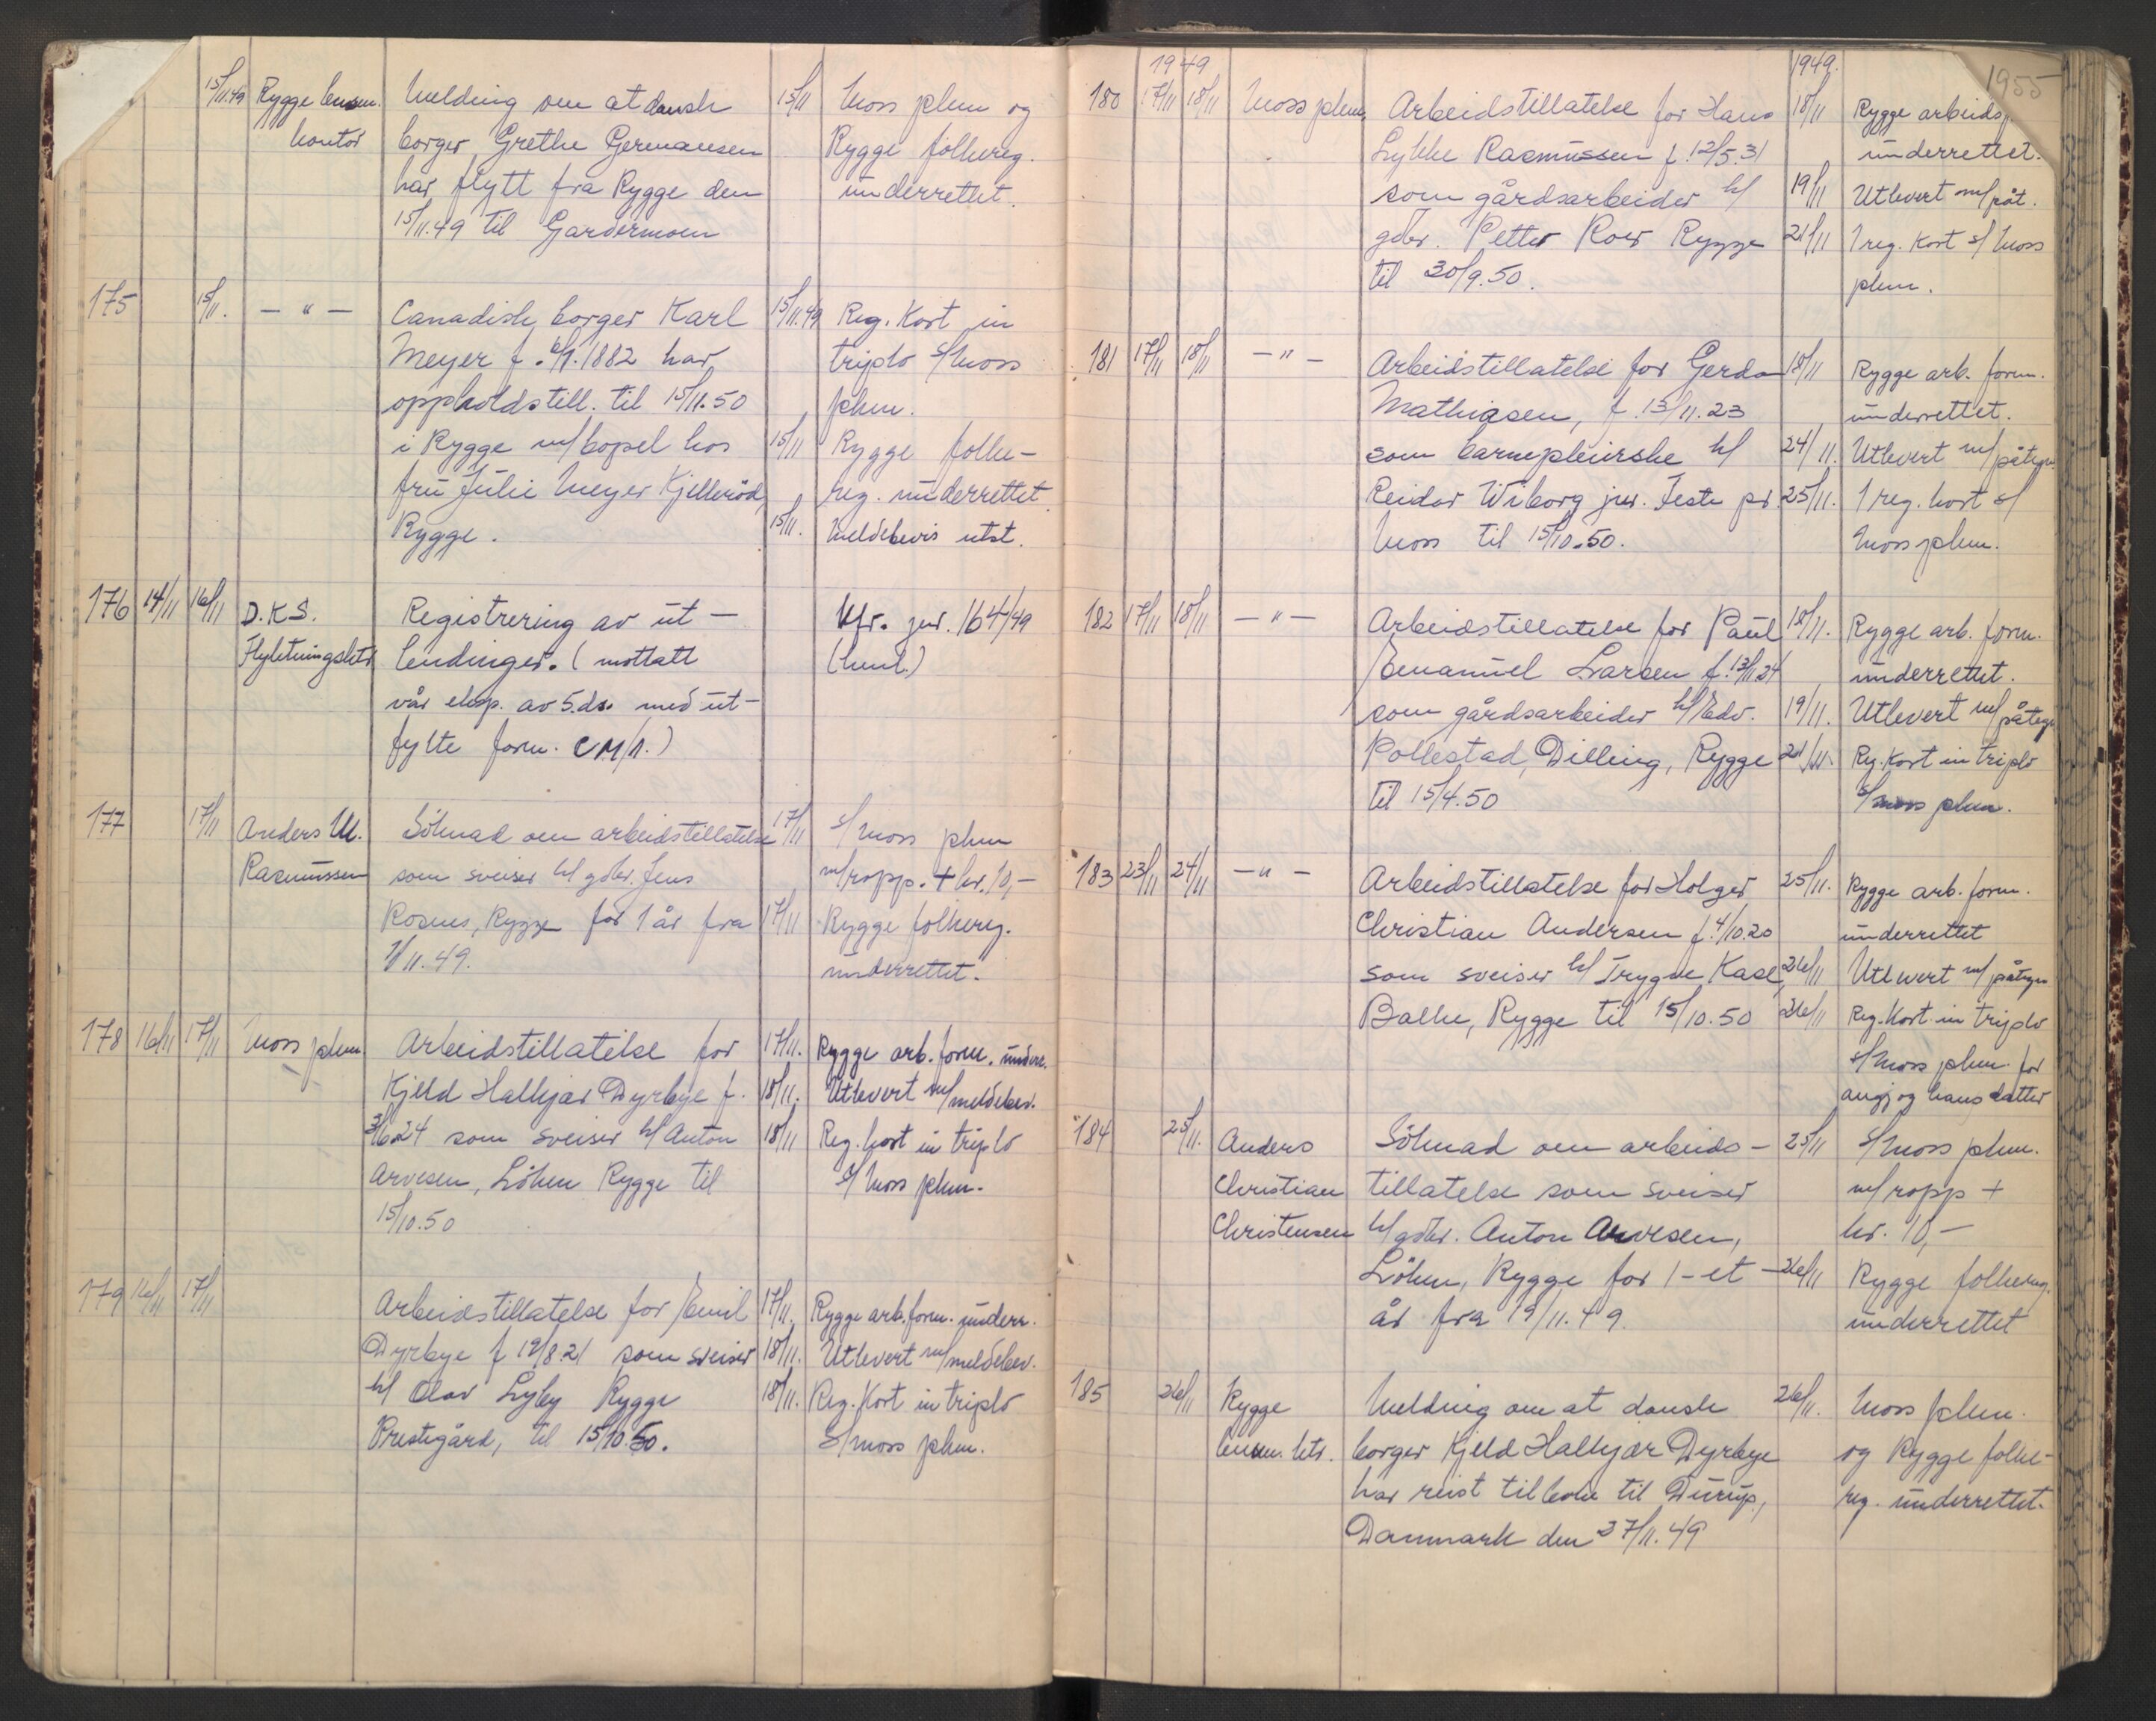 15/11.49 Rygge lensm. Melding om at dansk 15/11 Moss pkm og
kontor borger Grethe Germansen Rygge folkereg.
har flytt fra Rygge den underrettet.
15/11.49 til Gardermoen
175 15/11. — " — Canadisk borger Karl 15/11.49 Reg. Kort in
Meyer f. 6/1.1882 har triplo s/Moss
oppholdstill. til 15/11.50 pkm.
i Rygge m/bopel hos 15/11 Rygge folke-
fru Julie Meyer Kjellerød, reg. underrettet.
Rygge. 15/11. Meldebevis utst.
176 14/11 16/11 D.K.S. Registrering av ut- Kfr. jnr. 164/49
Flyktningsktr lendinger. (mottatt (henl.)
vår eksp. av 5.ds. med ut-
fylte form. CM/1.)
177 17/11 Anders M. Söknad om arbeidstillatelse 17/11 s/Moss pkm
Rasmussen som sveiser h/ gdbr. Jens m/ropp. + kr. 10,-
Rosnes, Rygge for 1 år fra 17/11 Rygge folkereg.
1/11.49. underrettet.
178 16/11 17/11 Moss pkm. Arbeidstillatelse for 17/11. Rygge arb. form. underr.
Kjeld Halkjær Dyrbye f. 18/11. Utlevert m/meldebev.
3/6.24 som sveiser h/ Anton 18/11 Reg. kort in triplo
Arvesen, Löken Rygge til s/ Moss pkm.
15/10.50
179 16/11 17/11 Arbeidstillatelse for Emil 17/11. Rygge arb. form. underr.
Dyrbye f 12/8.21 som sveiser 18/11. Utlevert m/meldebev.
h/ Olav Lyby Rygge 18/11. Reg. Kort in triplo
Prestegård, til 15/10.50. s/Moss pkm.
1949 1949. 1955
180 17/11 18/11 Moss pkm. Arbeidstillatelse for Hans 18/11 Rygge arbeids
Lykke Rasmussen f. 12/5.31 underrettet.
som gårdsarbeider h/ 19/11 Utlevert m/påt.
gdbr. Petter Roer Rygge 21/11 1 reg. kort s/ Moss
til 30/9.50. pkm.
181 17/11 18/11 — " — Arbeidstillatelse for Gerda 18/11 Rygge arb. form.
Mathiasen, f. 13/11.23 underrettet.
som barnepleierske h/ 24/11. Utlevert m/påtegn.
Reidar Wiborg jnr. Jeste pr. 25/11. 1 reg. kort s/
Moss til 15/10.50. Moss pkm.
182 17/11 18/11 — " — Arbeidstillatelse for Paul 18/11. Rygge arb. form.
Emanuel Larsen f. 13/11.24 underrettet.
som gårdsarbeider h/ Edv. 19/11. Utlevert m/påtegn
Pollestad, Dilling, Rygge 21/11. Reg. Kort in triplo
til 15/4.50 s/ Moss pkm.
183 23/11 24/11 — " — Arbeidstillatelse for Holger 25/11. Rygge arb. form.
Christian Andersen f. 4/10.20 underrettet
som sveiser h/ Trygve Kase, 26/11 Utlevert m/påtegn
Balke, Rygge til 15/10.50 26/11 Reg. Kort in triplo
s/ Moss pkm. for
angj. og hans datter
184 25/11. Anders Söknad om arbeids- 25/11 s/Moss pkm.
Christian tillatelse som sveiser m/ropp +
Christensen h/ gdbr. Anton Arvesen, kr. 10,-
Löken, Rygge for 1-et 26/11 Rygge folkereg.
år fra 19/11.49. underrettet
185 26/11 Rygge Melding om at dansk 26/11. Moss pkm.
lensm. ktr. borger Kjeld Halkjær Dyrbye og Rygge folke-
har reist tilbake til Durup, reg. underrettet.
Danmark den 27/11.49